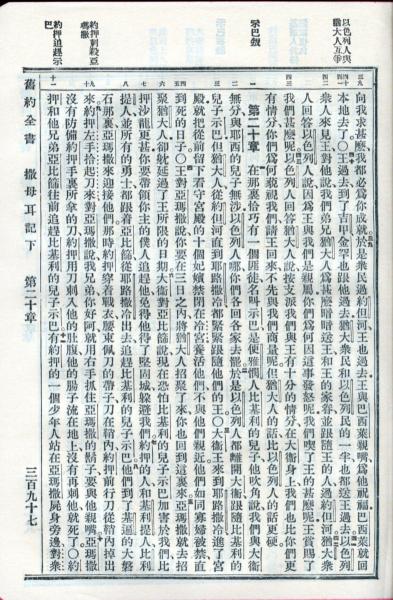 以色列人與
猶大人互爭
示巴叛
約押刺殺亞
瑪撒
約押追趕示
巴
向我求甚麼我都必爲你成就於是衆民過約但河王也過去王與巴西萊親嘴爲他祝福巴西萊就回
本地去了○王過去到了吉甲金罕也跟他過去猶大衆民和以色列民的一半也都送王過去以色列
衆人來見王對他說我們弟兄猶大人爲甚麼暗暗送王和王的家眷並跟隨王的人過約但河猶大衆
人回答以色列人說因爲王與我們是親屬你們爲何因這事發怒呢我們喫了王的甚麼呢王賞賜了
我們甚麼呢以色列人回答猶大人說按支派我們與王有十分的情分在大衛身上我們也比你們更
有情分你們爲何藐視我們請王回來不先與我們商量呢但猶大人的話比以色列人的話更硬
第二十章 在那裏恰巧有一個匪徒名叫示巴是便雅憫人比基利的兒子他吹角說我們與大衛
無分與耶西的兒子無涉以色列人哪你們各回各家去罷於是以色列人都離開大衛跟隨比基利的
兒子示巴但猶大人從約但河直到耶路撒冷都緊緊跟隨他們的王○大衛王來到耶路撒冷進了宮
殿就把從前留下看守宮殿的十個妃嬪禁閉在冷宮養活他們不與他們親近他們如同寡婦被禁直
到死的日子○王對亞瑪撒說你要在三日之內將猶大人招聚了來你也回到這裏來亞瑪撒去招
聚猶大人卻躭延過了王所限的日期大衛對亞比篩說現在恐怕比基利的兒子示巴加害於我們比
押沙龍更甚你要帶領你主的僕人追趕他免得他得了堅固城躱避我們約押的人和基利提人比利
提人並所有的勇士都跟着亞比篩從耶路撒冷出去追趕比基利的兒子示巴他們到了基遍的大磐
石那裏亞瑪撒來迎接他們那時約押穿着戰衣腰束佩刀的帶子刀在鞘內約押前行刀從鞘內掉出
來約押左手拾起刀來對亞瑪撒說我兄弟你好阿就用右手抓住亞瑪撒的鬍子要與他親嘴亞瑪撒
沒有防備約押手裏所拿的刀約押用刀刺入他的肚腹他的腸子流在地上沒有再刺他就死了○約
押和他兄弟亞比篩往前追趕比基利的兒子示巴有約押的一個少年人站在亞瑪撒屍身旁邊對衆
舊約全書 撒母耳記下 第二十章 三百九十七